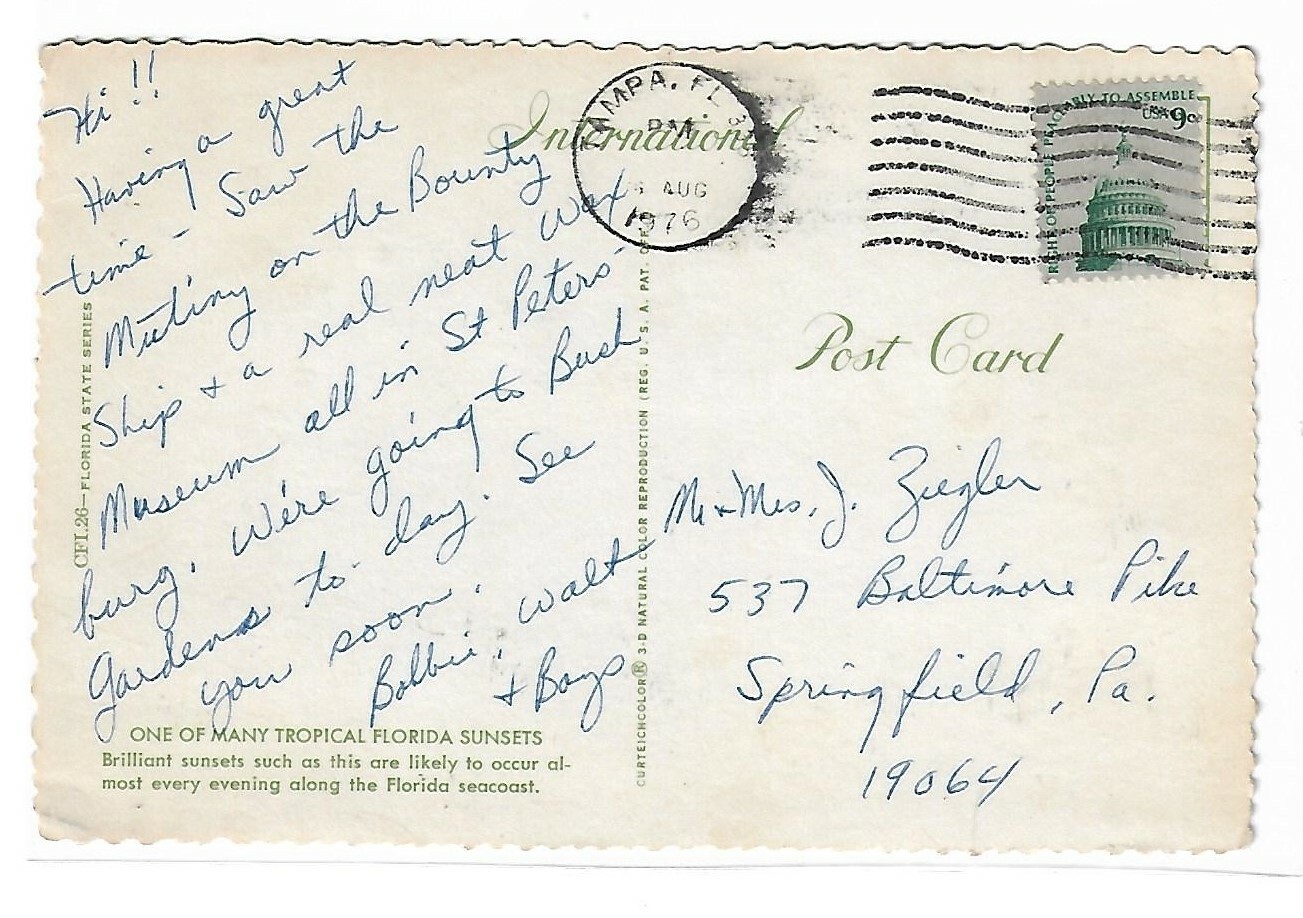 Hi!!
Having a great
time - Saw the
Mutiny on the Bounty
Ship + a real neat Wax
Museum all in St Peters-
burg. We're going to Busch
Gardens to day. See
you soon.
Bobbie, Walt
+ Boys
ONE OF MANY TROPICAL FLORIDA SUNSETS
Brilliant sunsets such as this are likely to occur al-
most every evening along the Florida seacoast.
CFI.26—FLORIDA STATE SERIES
International
CURTEICHCOLOR® 3-D NATURAL COLOR REPRODUCTION (REG. U. S. A. PAT. OFF.
TAMPA, FL
PM
AUG
1976
RIGHT OF PEOPLE PEACEABLY TO ASSEMBLE
USA 9c
Post Card
Mr + Mrs. J. Ziegler
537 Baltimore Pike
Springfield, Pa.
19064